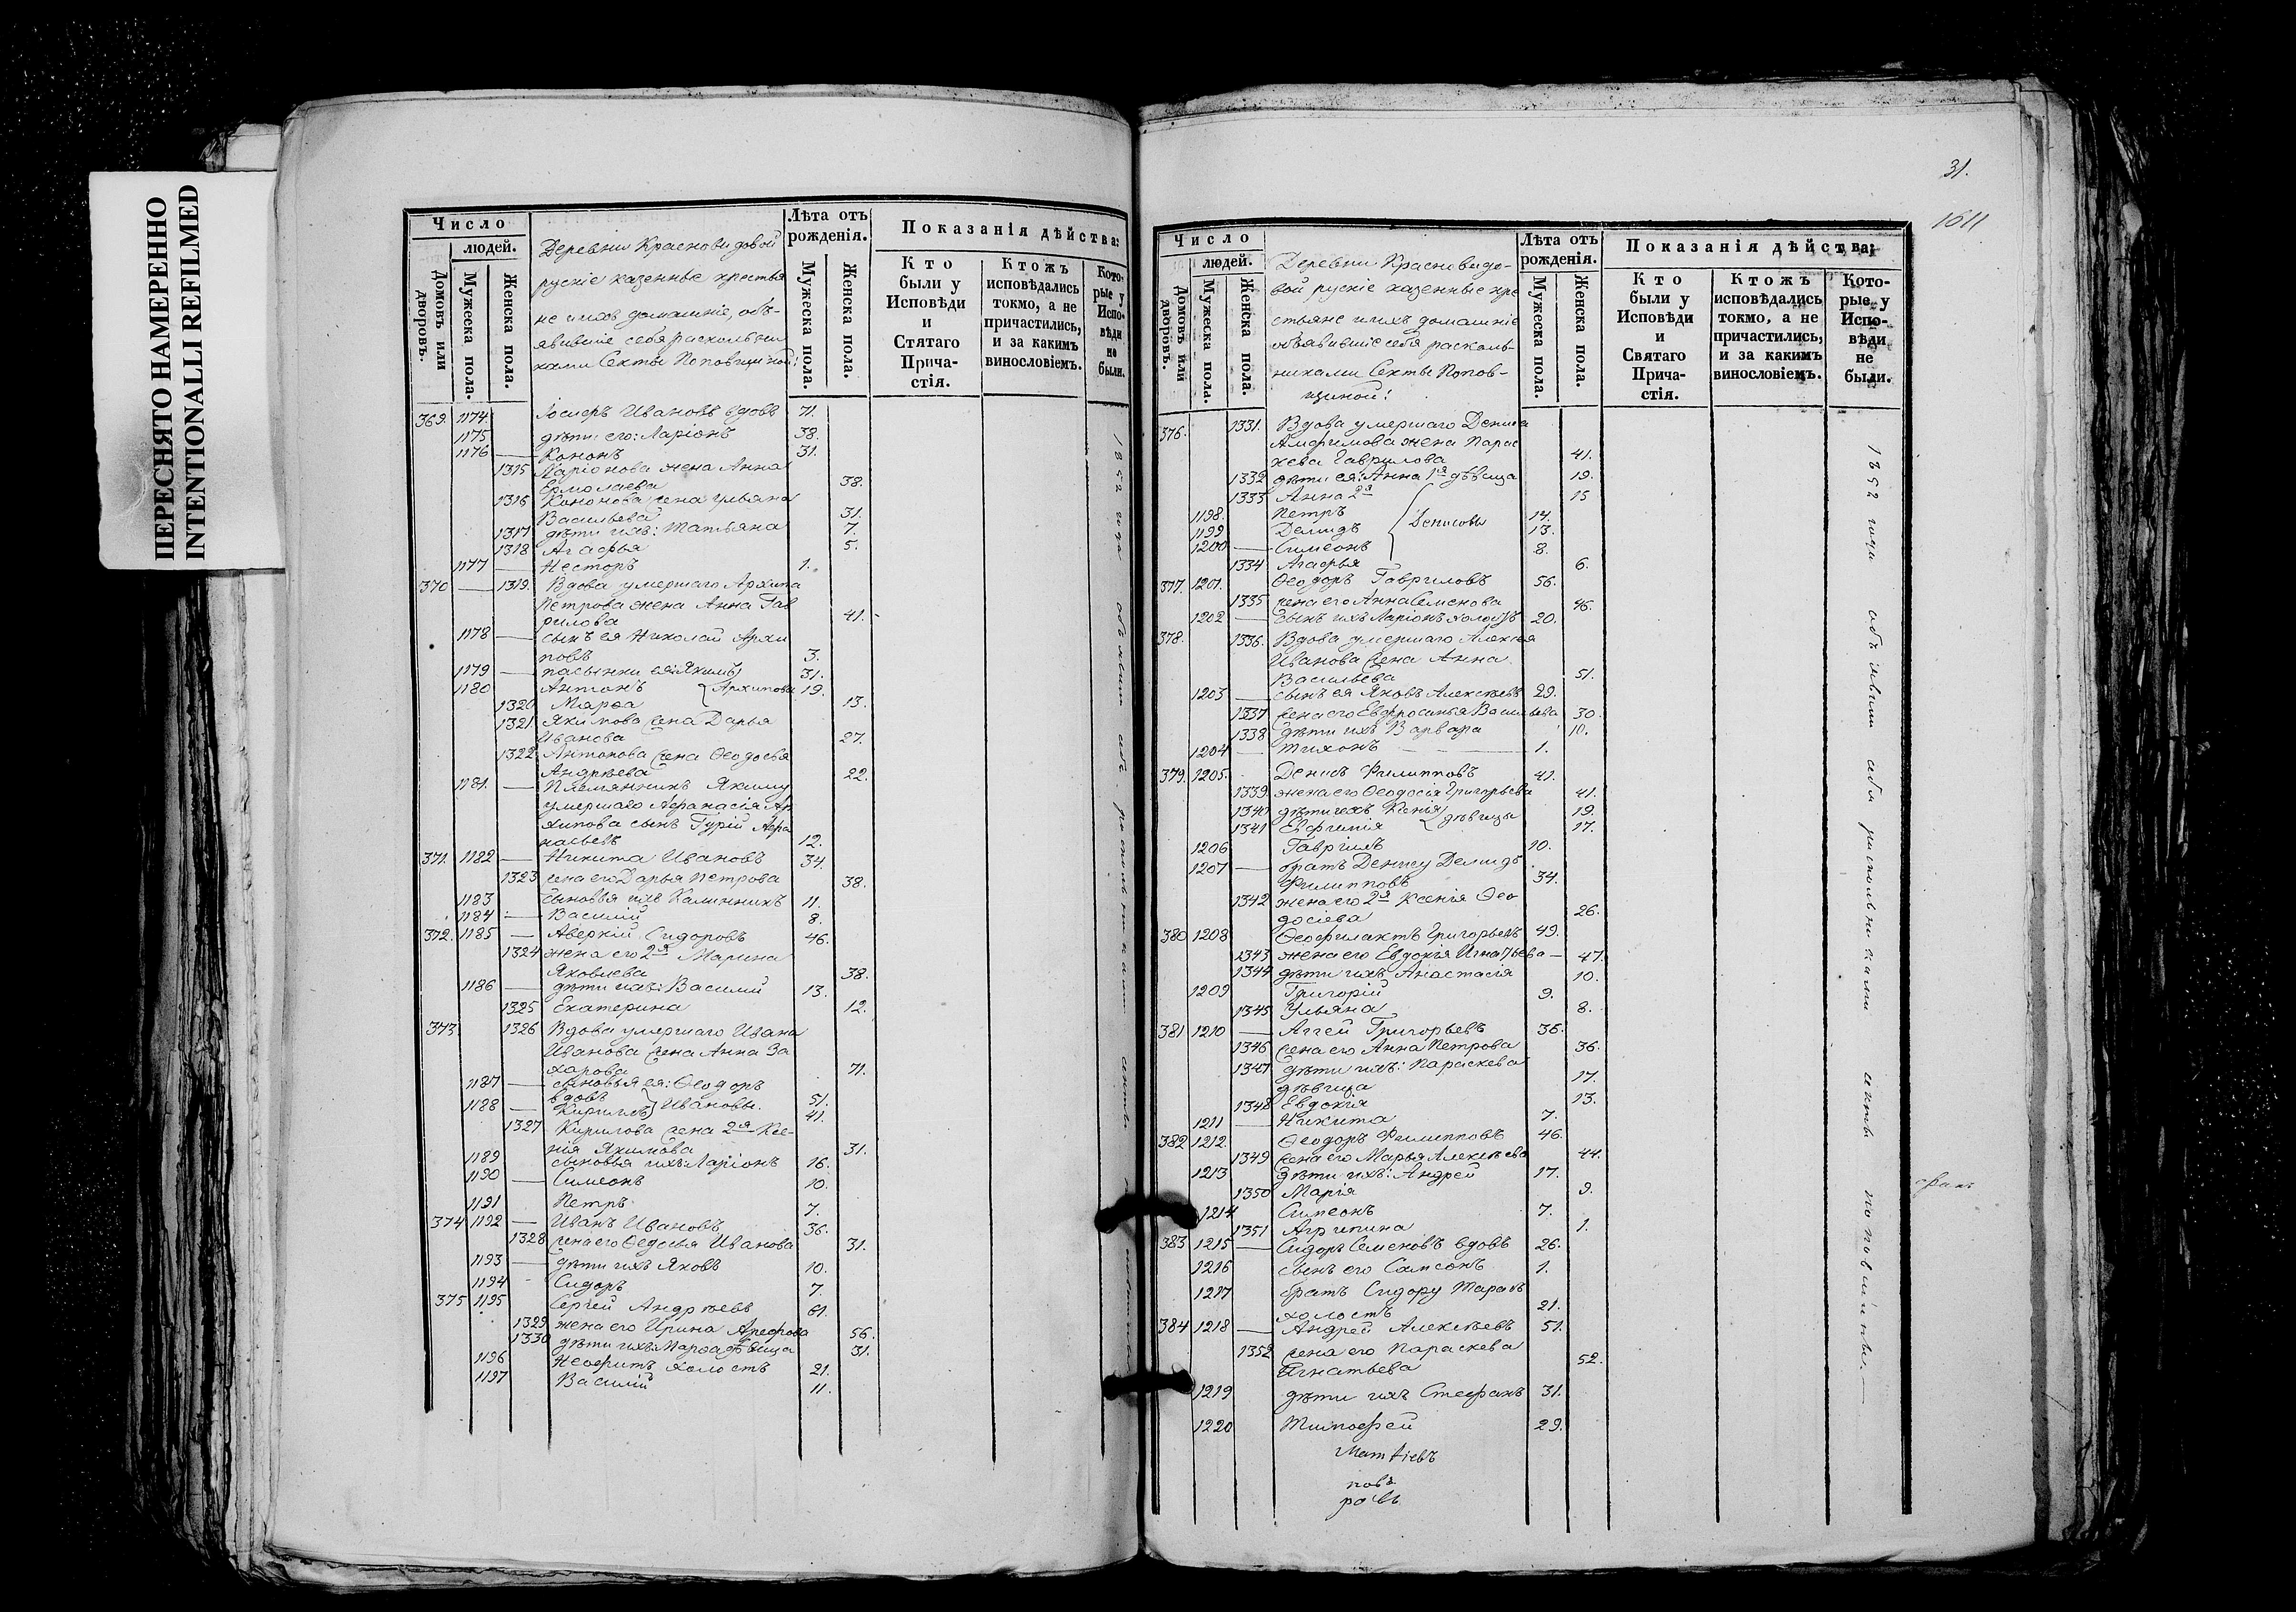 ПЕРЕСНЯТО НАМЕРЕННО
INTENTIONALLI REFILMED
Число
людей.
Домовъ или дворовъ.
Мужеска пола.
Женска пола.
Деревни Красновидовой
рускіе казенные крестья
не и ихъ домашніе, объ-
явившіе себя раскольни
ками Секты Поповщиной:
Лѣта отъ
рожденія.
Мужеска пола.
Женска пола.
Показанія дѣйства:
Кто
были у
Исповѣди
и
Стятаго
Прича-
стія.
Ктожъ
исповѣдались
токмо, а не
причастились,
и за какимъ
винословіемъ.
Кото-
рые у
Испо-
вѣди
не
были.
369. 1174. Ивановъ вдовъ 71.
1175 дѣти его: Ларіонъ 38.
1176 Кононъ 31.
1315 Ларіонова жена Анна
Ермолаева 38.
1316 Кононова жена Ульяна
Васильева 31.
1317 дѣти ихъ: Татьяна 7.
1318 Агафья 5.
1177 Несторъ 1.
370 1319. Вдова умершаго Архипа
Петрова жена Анна Гав
рилова 41.
1178 сынъ ея Николай Архи
повъ 3.
1179 пасынки ея: Якимъ 31.
1180 Антонъ Архиповы 19.
1320 Марѳа 13.
1321 Якимова жена Дарья
Иванова 27.
1322 Антонова жена Ѳеодосья
Андрѣева 22.
1181. Племянникъ Якиму
умершаго Афанасія Ар
хипова сынъ Гурій Афа
насьевъ 12.
371. 1182 Никита Ивановъ 34.
1323 жена его Дарья Петрова 38.
1183 сыновья ихъ Калинникъ 11.
1184 Василій 8.
372. 1185 Аверкій Сидоровъ 46.
1324 жена его 2я Марина
Яковлева 38.
1186 дѣти ихъ: Василій 13.
1325 Екатерина 12.
373 1326 Вдова умершаго Ивана
Иванова жена Анна За
харова 71.
1187 сыновья ея: Ѳеодоръ
вдовъ 51.
1188 Кирилъ Ивановы. 41.
1327 Кирилова жена 2я Ксе-
нія Якимова 31.
1189 сыновья ихъ: Ларіонъ 16.
1190 Симеонъ 10.
1191 Петръ 7.
374 1192 Иванъ Ивановъ 36.
1328 жена его Ѳедосья Иванова 31.
1193 дѣти ихъ Яковъ 10.
1194 Сидоръ 7.
375 1195 Сергѣй Андрѣевъ 61.
1329 жена его Ирина Арефова 56.
1330 дѣти ихъ: Марѳа дѣвица 31.
1196 Неофитъ холостъ 21.
1197 Василій 11.
31.
1611
Число
людей.
Домовъ или дворовъ.
Мужеска пола.
Женска пола.
Деревни Красновидо-
вой рускіе казенные кре
стьяне и ихъ домашніе
объявившіе себя расколь-
никами Секты Попов-
щиной:
Лѣта отъ
рожденія.
Мужеска пола.
Женска пола.
Показанія дѣйства:
Кто
были у
Исповѣди
и
Святаго
Прича-
стія.
Ктожъ
исповѣдались
токмо, а не
причастились,
и за какимъ
винословіемъ.
Кото-
рые у
Испо-
вѣди
не
были.
376. 1331. Вдова умершаго Дениса
Амфимова жена Парас
кева Гаврилова 41.
1332 дѣти ея: Анна 1я дѣвица 19.
1333 Анна 2я 15
1198. Петръ Денисовы 14.
1199 Демидъ 13.
1200 Симеонъ 8.
1334 Агафья 6.
377. 1201. Ѳеодоръ Гавриловъ 56.
1335 жена его Анна Семенова 46.
1202 сынъ ихъ Ларіонъ холостъ 20.
378. 1336. Вдова умершаго Алексѣя
Иванова жена Анна
Васильева 51.
1203 сынъ ея Яковъ Алексѣевъ 29.
1337 жена его Евфросинья Васильева 30.
1338 дѣти ихъ Варвара 10.
1204 Тихонъ 1.
379. 1205. Денисъ Филипповъ 41.
1339. жена его Ѳеодосья Григорьева 41.
1340 дѣти ихъ Ксенія 19.
1341 Евфимія дѣвицы 17.
1206 Гавріилъ 10.
1207 братъ Денису Демидъ
Филипповъ 34.
1342 жена его 2я Ксенія Ѳео
досіева 26.
380 1208 Ѳеофилактъ Григорьевъ 49.
1343 жена его Евдокія Игнатьева 47.
1344 дѣти ихъ Анастасія 10.
1209 Григорій 9.
1345 Ульяна 8.
381 1210 Аггей Григорьевъ 36.
1346 жена его Анна Петрова 36.
1347 дѣти ихъ: Параскева
дѣвица 17.
1348 Евдокія 13.
1211 Никита 7.
382 1212. Ѳеодоръ Филипповъ 46.
1349 жена его Марья Алексѣева 44.
1213 дѣти ихъ: Андрей 17.
1350 Марія 9.
1214 Симеонъ 7.
1351 Агрипина 1.
383 1215 Сидоръ Семеновъ вдовъ 26.
1216 сынъ его Самсонъ 1.
1217 братъ Сидору Тарасъ
холостъ 21.
384 1218 Андрей Алексѣевъ 51.
1352 жена его Параскева
Игнатьева 52.
1219 дѣти ихъ Стефанъ 31.
1220 Тимофей 29.
1852 года объявили себя раскольниками секты поповщины.